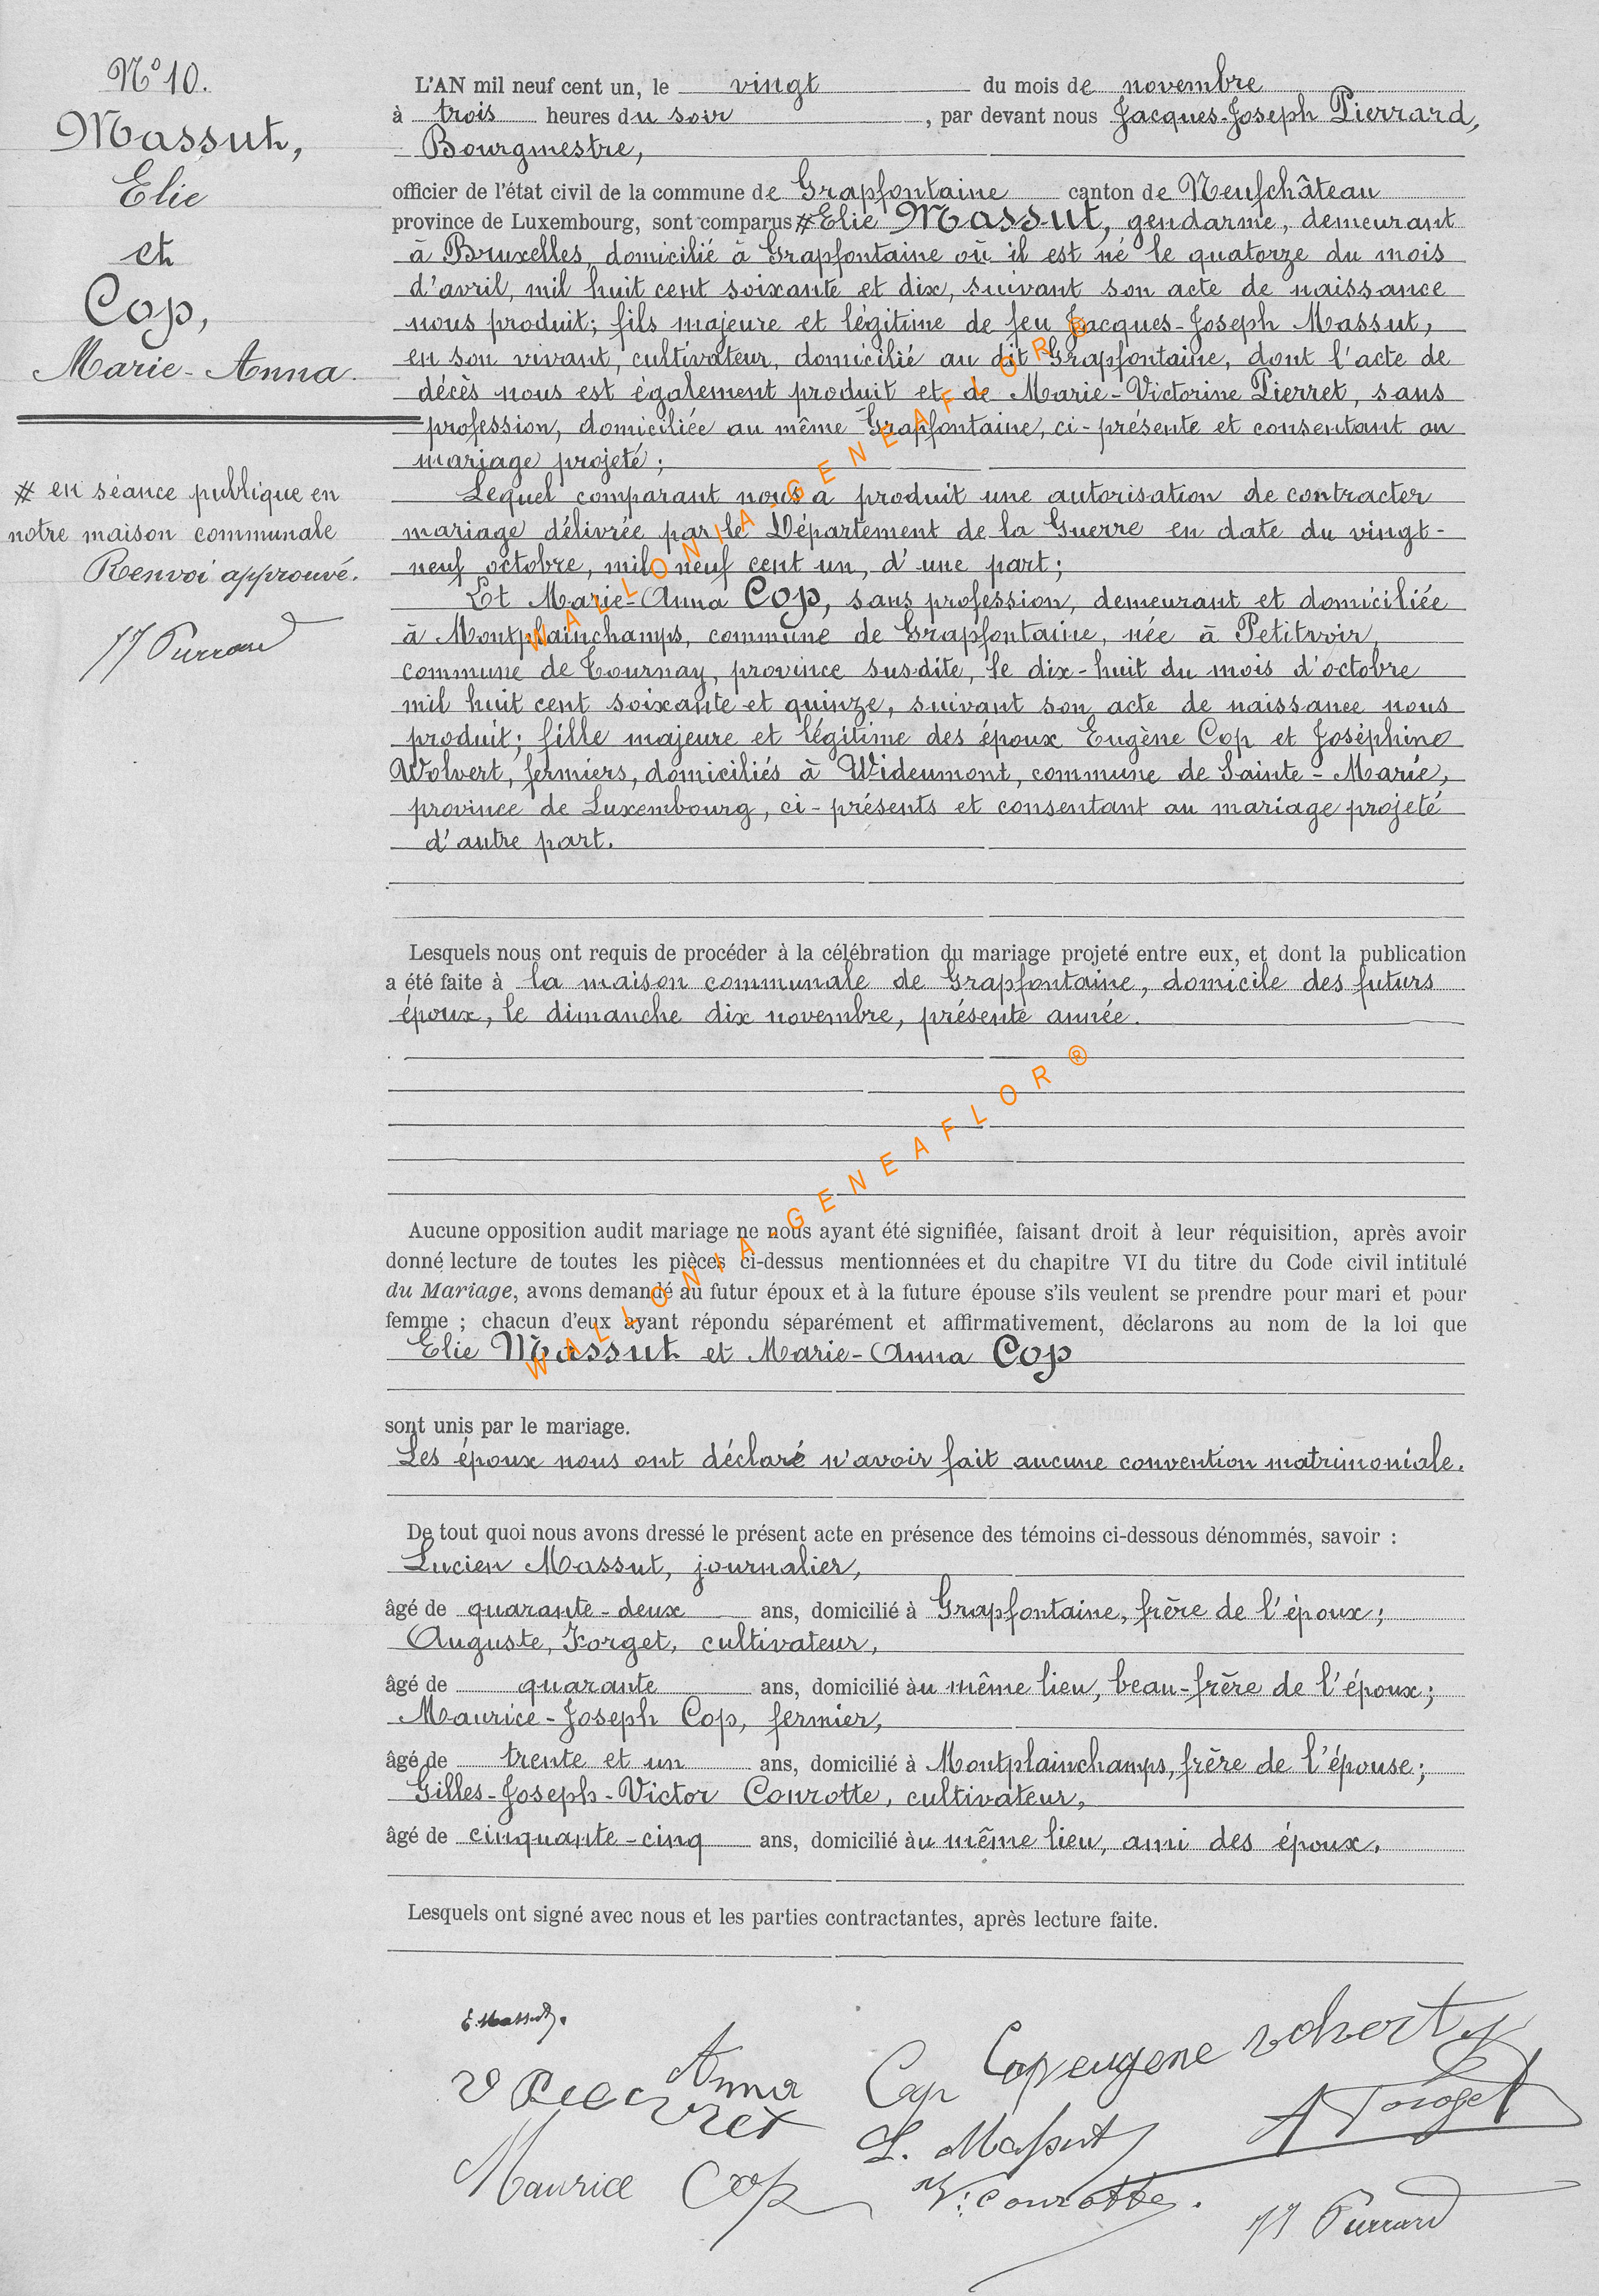 N° 10.
Massut,
Elie
et
Cop,
Marie-Anna.
# en séance publique en
notre maison communale
Renvoi approuvé.
JJ Pierrard
L'AN mil neuf cent un, le vingt du mois de novembre
à trois heures du soir, par devant nous Jacques-Joseph Pierrard,
Bourgmestre,
officier de l'état civil de la commune de Grapfontaine canton de Neufchâteau
province de Luxembourg, sont comparus # Elie Massut, gendarme, demeurant
à Bruxelles, domicilié à Grapfontaine où il est né le quatorze du mois
d'avril, mil huit cent soixante et dix, suivant son acte de naissance
nous produit; fils majeure et légitime de feu Jacques-Joseph Massut,
en son vivant, cultivateur, domicilié au dit Grapfontaine, dont l'acte de
décès nous est également produit et de Marie-Victorine Pierret, sans
profession, domiciliée au même Grapfontaine, ci-présente et consentant au
mariage projeté;
Lequel comparant nous a produit une autorisation de contracter
mariage délivrée par le Département de la Guerre en date du vingt-
neuf octobre, mil neuf cent un, d'une part;
Et Marie-Anna Cop, sans profession, demeurant et domiciliée
à Montplainchamps, commune de Grapfontaine, née à Petitvoir,
commune de Tournay, province susdite, le dix-huit du mois d'octobre
mil huit cent soixante et quinze, suivant son acte de naissance nous
produit; fille majeure et légitime des époux Eugène Cop et Joséphine
Wolvert, fermiers, domiciliés à Wideumont, commune de Sainte-Marie,
province de Luxembourg, ci-présents et consentant au mariage projeté
d'autre part.
Lesquels nous ont requis de procéder à la célébration du mariage projeté entre eux, et dont la publication
a été faite à la maison communale de Grapfontaine, domicile des futurs
époux, le dimanche dix novembre, présente année.
Aucune opposition audit mariage ne nous ayant été signifiée, faisant droit à leur réquisition, après avoir
donné lecture de toutes les pièces ci-dessus mentionnées et du chapitre VI du titre du Code civil intitulé
du Mariage, avons demandé au futur époux et à la future épouse s'ils veulent se prendre pour mari et pour
femme ; chacun d'eux ayant répondu séparément et affirmativement, déclarons au nom de la loi que
Elie Massut et Marie-Anna Cop
sont unis par le mariage.
Les époux nous ont déclaré n'avoir fait aucune convention matrimoniale.
De tout quoi nous avons dressé le présent acte en présence des témoins ci-dessous dénommés, savoir :
Lucien Massut, journalier,
âgé de quarante-deux ans, domicilié à Grapfontaine, frère de l'époux;
Auguste, Forget, cultivateur,
âgé de quarante ans, domicilié àu même lieu, beau-frère de l'époux;
Maurice-Joseph Cop, fermier,
âgé de trente et un ans, domicilié à Montplainchamps, frère de l'épouse;
Gilles-Joseph-Victor Courotte, cultivateur,
âgé de cinquante-cinq ans, domicilié àu même lieu, ami des époux.
Lesquels ont signé avec nous et les parties contractantes, après lecture faite.
E. Massut.
Anna Cop Cop eugene
L. Massut A Forget
Maurice Cop V: Courotte.
JJ Pierrard
WALLONIA-GENEAFLOR®
WALLONIA-GENEAFLOR®